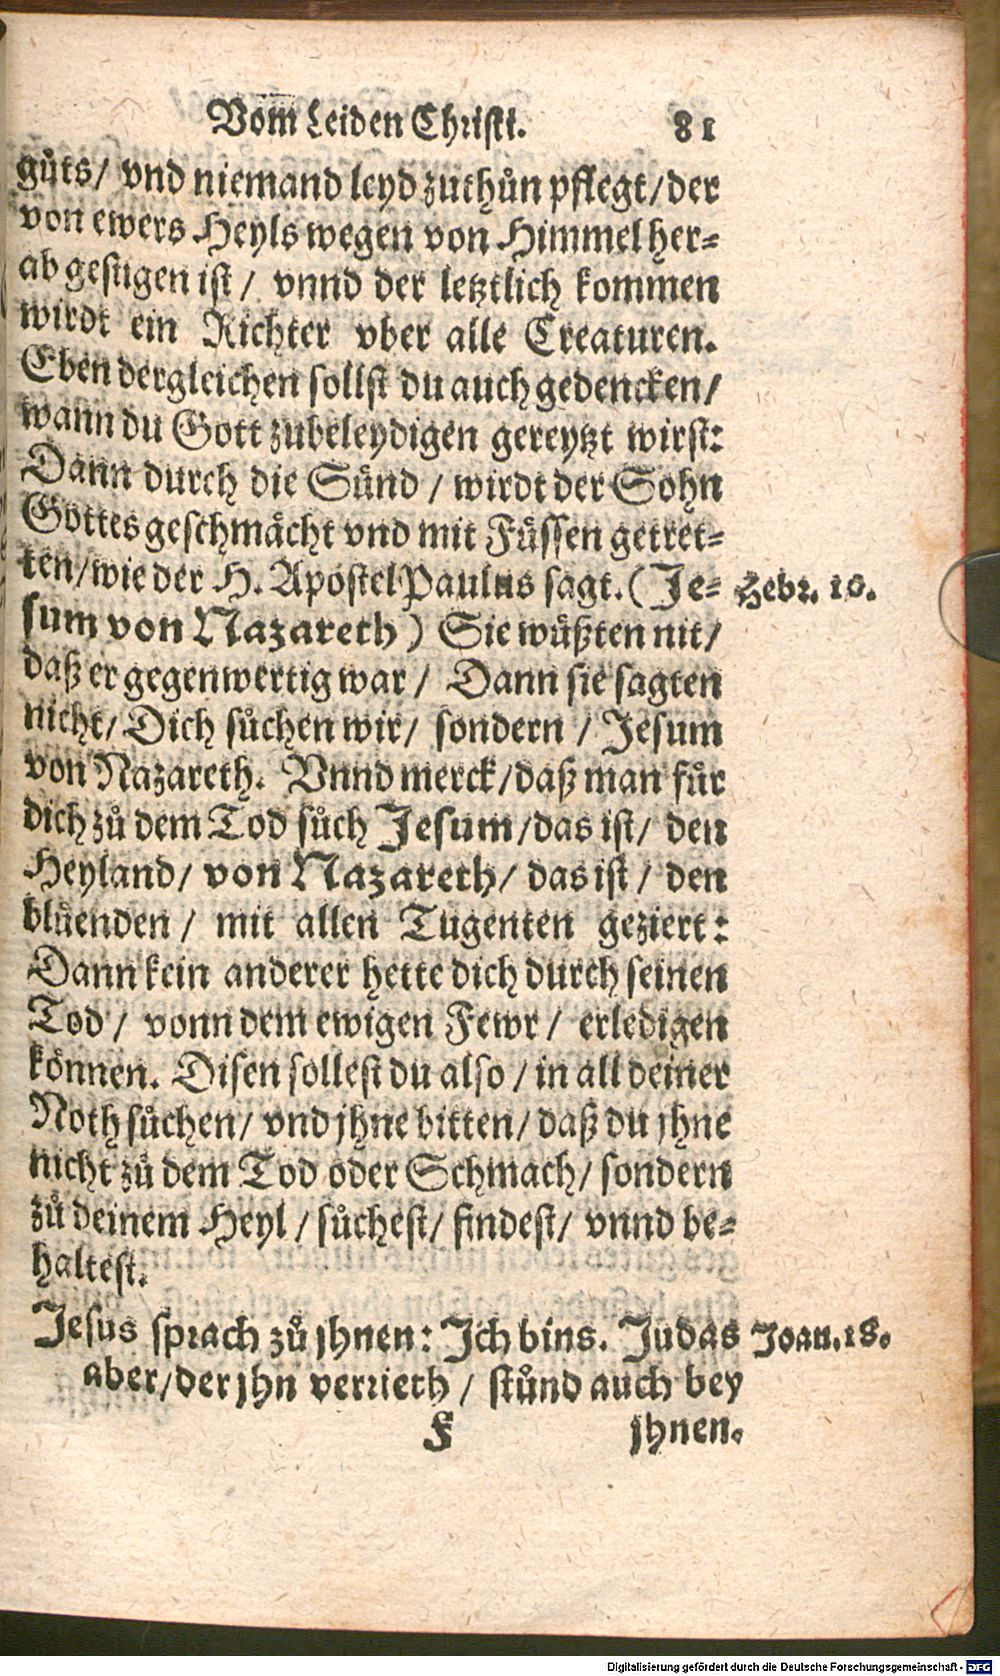 Vom Leiden Christi. 81
gůts/ vnd niemand leyd zuthůn pflegt/der
von ewers Heyls wegen von Himmel her=
ab gestigen ist/ vnnd der letztlich kommen
wirdt ein Richter vber alle Creaturen.
Eben dergleichen sollst du auch gedencken/
wann du Gott zubeleydigen gereytzt wirst:
Dann durch die Sünd/ wirdt der Sohn
Gottes geschmächt vnd mit Füssen getret=
ten/wie der H. Apostel Paulus sagt. (Je= Hebr. 10.
sum von Nazareth) Sie wüßten nit/
daß er gegenwertig war/ Dann sie sagten
nicht/ Dich sůchen wir/ sondern/ Jesum
von Nazareth. Vnnd merck/daß man für
dich zů dem Tod sůch Jesum/das ist/ den
Heyland/ von Nazareth/ das ist/ den
blůenden/ mit allen Tugenten geziert:
Dann kein anderer hette dich durch seinen
Tod/ vonn dem ewigen Fewr/ erledigen
können. Disen sollest du also/ in all deiner
Noth sůchen/ vnd jhne bitten/ daß du jhne
nicht zů dem Tod oder Schmach/ sondern
zů deinem Heyl/ sůchest/ findest/ vnnd be=
haltest.
Jesus sprach zů jhnen: Ich bins. Judas Joan. 18.
aber/der jhn verrieth/ stůnd auch bey
F jhnen.
Digitalisierung gefördert durch die Deutsche Forschungsgemeinschaft - DFG